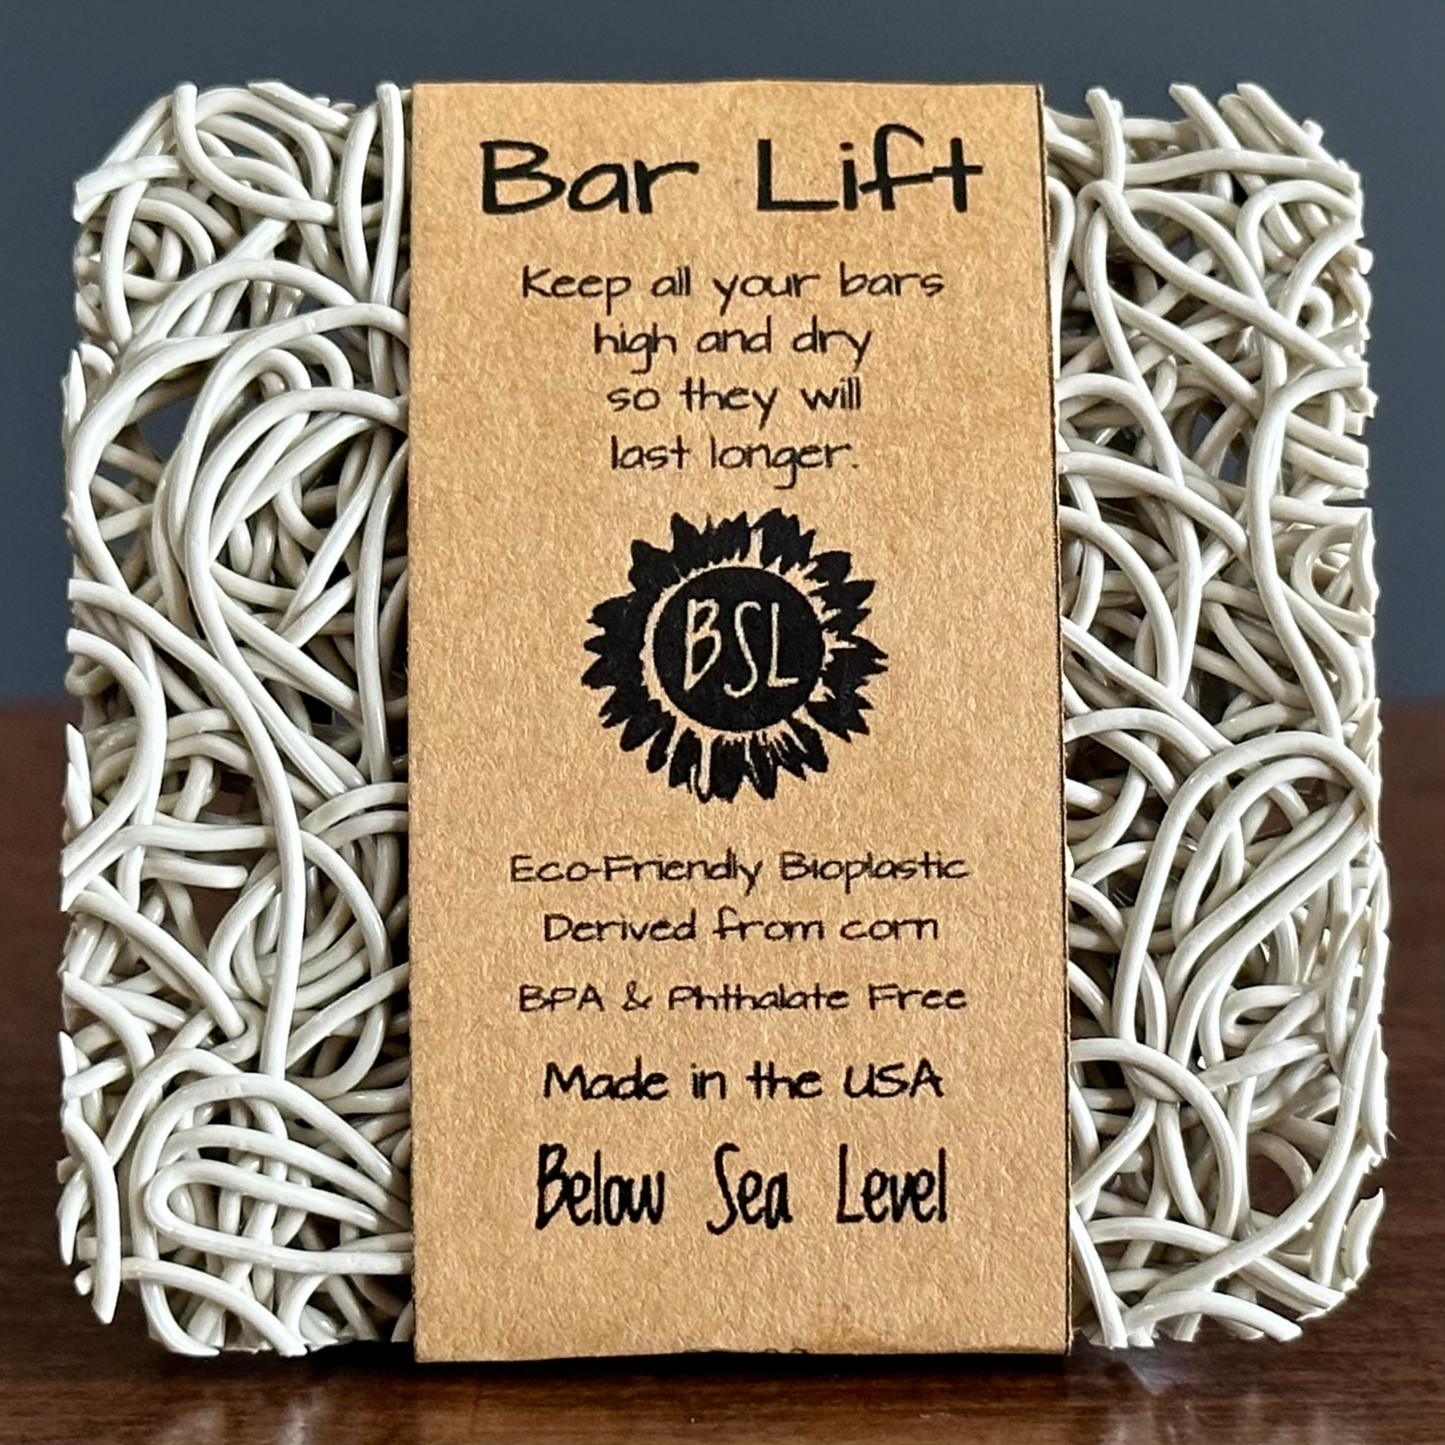 Bar Lift
Keep all your bars
high and dry
so they will
last longer.
BSL
Eco-Friendly Bioplastic
Derived from corn
BPA & Phthalate Free
Made in the USA
Below Sea Level